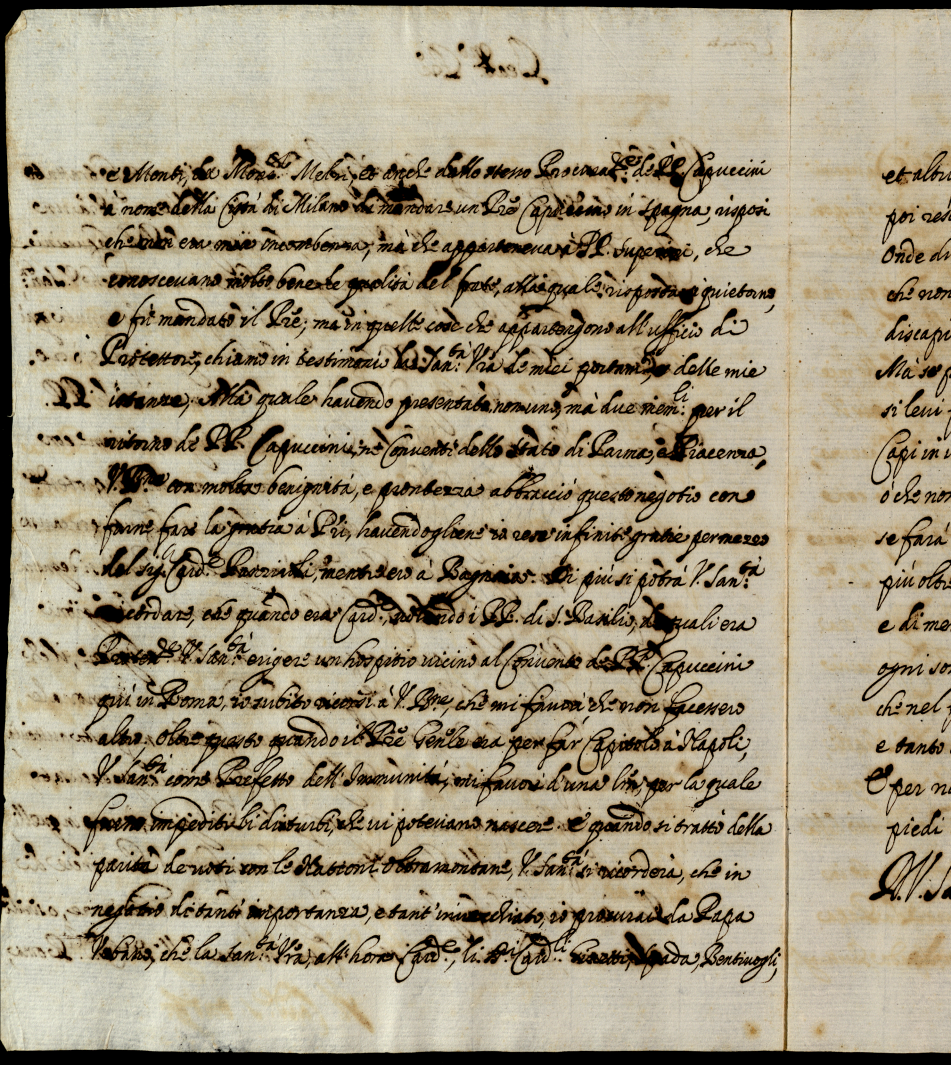 e Monti, da Mons.r Meltri, et anche dallo stesso Procurat.re de PP. Capuccini
à nome della Città di Milano di mandare un Prẽ Capuccino in Spagna, risposi
che non era mia incombenza, mà che apparteneva à PP. Superiori, che
conoscevano molto bene le qualità del frate, alla quale risposta quietorno,
e fù mandato il Prẽ; ma in quelle cose che appartengono all'ufficio di
Protettore, chiamo in testimonio la San.tà Vra de miei portamti, e delle mie
istanze, Alla quale havendo presentato non uno, mà due mem.li per il
ritorno de PP. Capuccini, ne Conventi dello Stato di Parma, e Piacenza,
V. B.ne con molta benignità, e prontezza abbracciò questo negotio con
farne fare la gratia à Pri, havendogliene io rese infinite gratie per mezo
del sig. Card.e Panziroli, mentre ero à Bagnaia. Di più si potrà V. San.tà
ricordare, che quando era Card.e, volendo i PP. di S. Basilio, de quali era
Protett.re V. San.tà erigere un hospitio vicino al Convento de PP. Capuccini
quì in Roma, io subito ricorsi à V. B.ne, che mi favorì che non facessero
altro. Oltre questo quando il Prẽ Gen.le era per far Capitolo à Napoli,
V. San.tà come Prefetto dell'Immunità, mi favorì d'una lrã, per la quale
furno impediti li disturbi, che vi potevano nascere. e quando si trattò della
parità de voti con le Nationi Oltramontane, V. San.tà si ricorderà, che in
negotio di tant'importanza, e tant'invecchiato, io procurai da Papa
Urbano, che la San.tà Vra, all'hora Card.e, li SS.ri Card.li Spada, Bentivogli,
et altri
poi res
Onde di
che non
discapi
Mà se p
si levi
Capi in
ò che non
se farà
più oltre
e di me
ogni so
che nel
e tanto
E per n
piedi
D. V. Sa